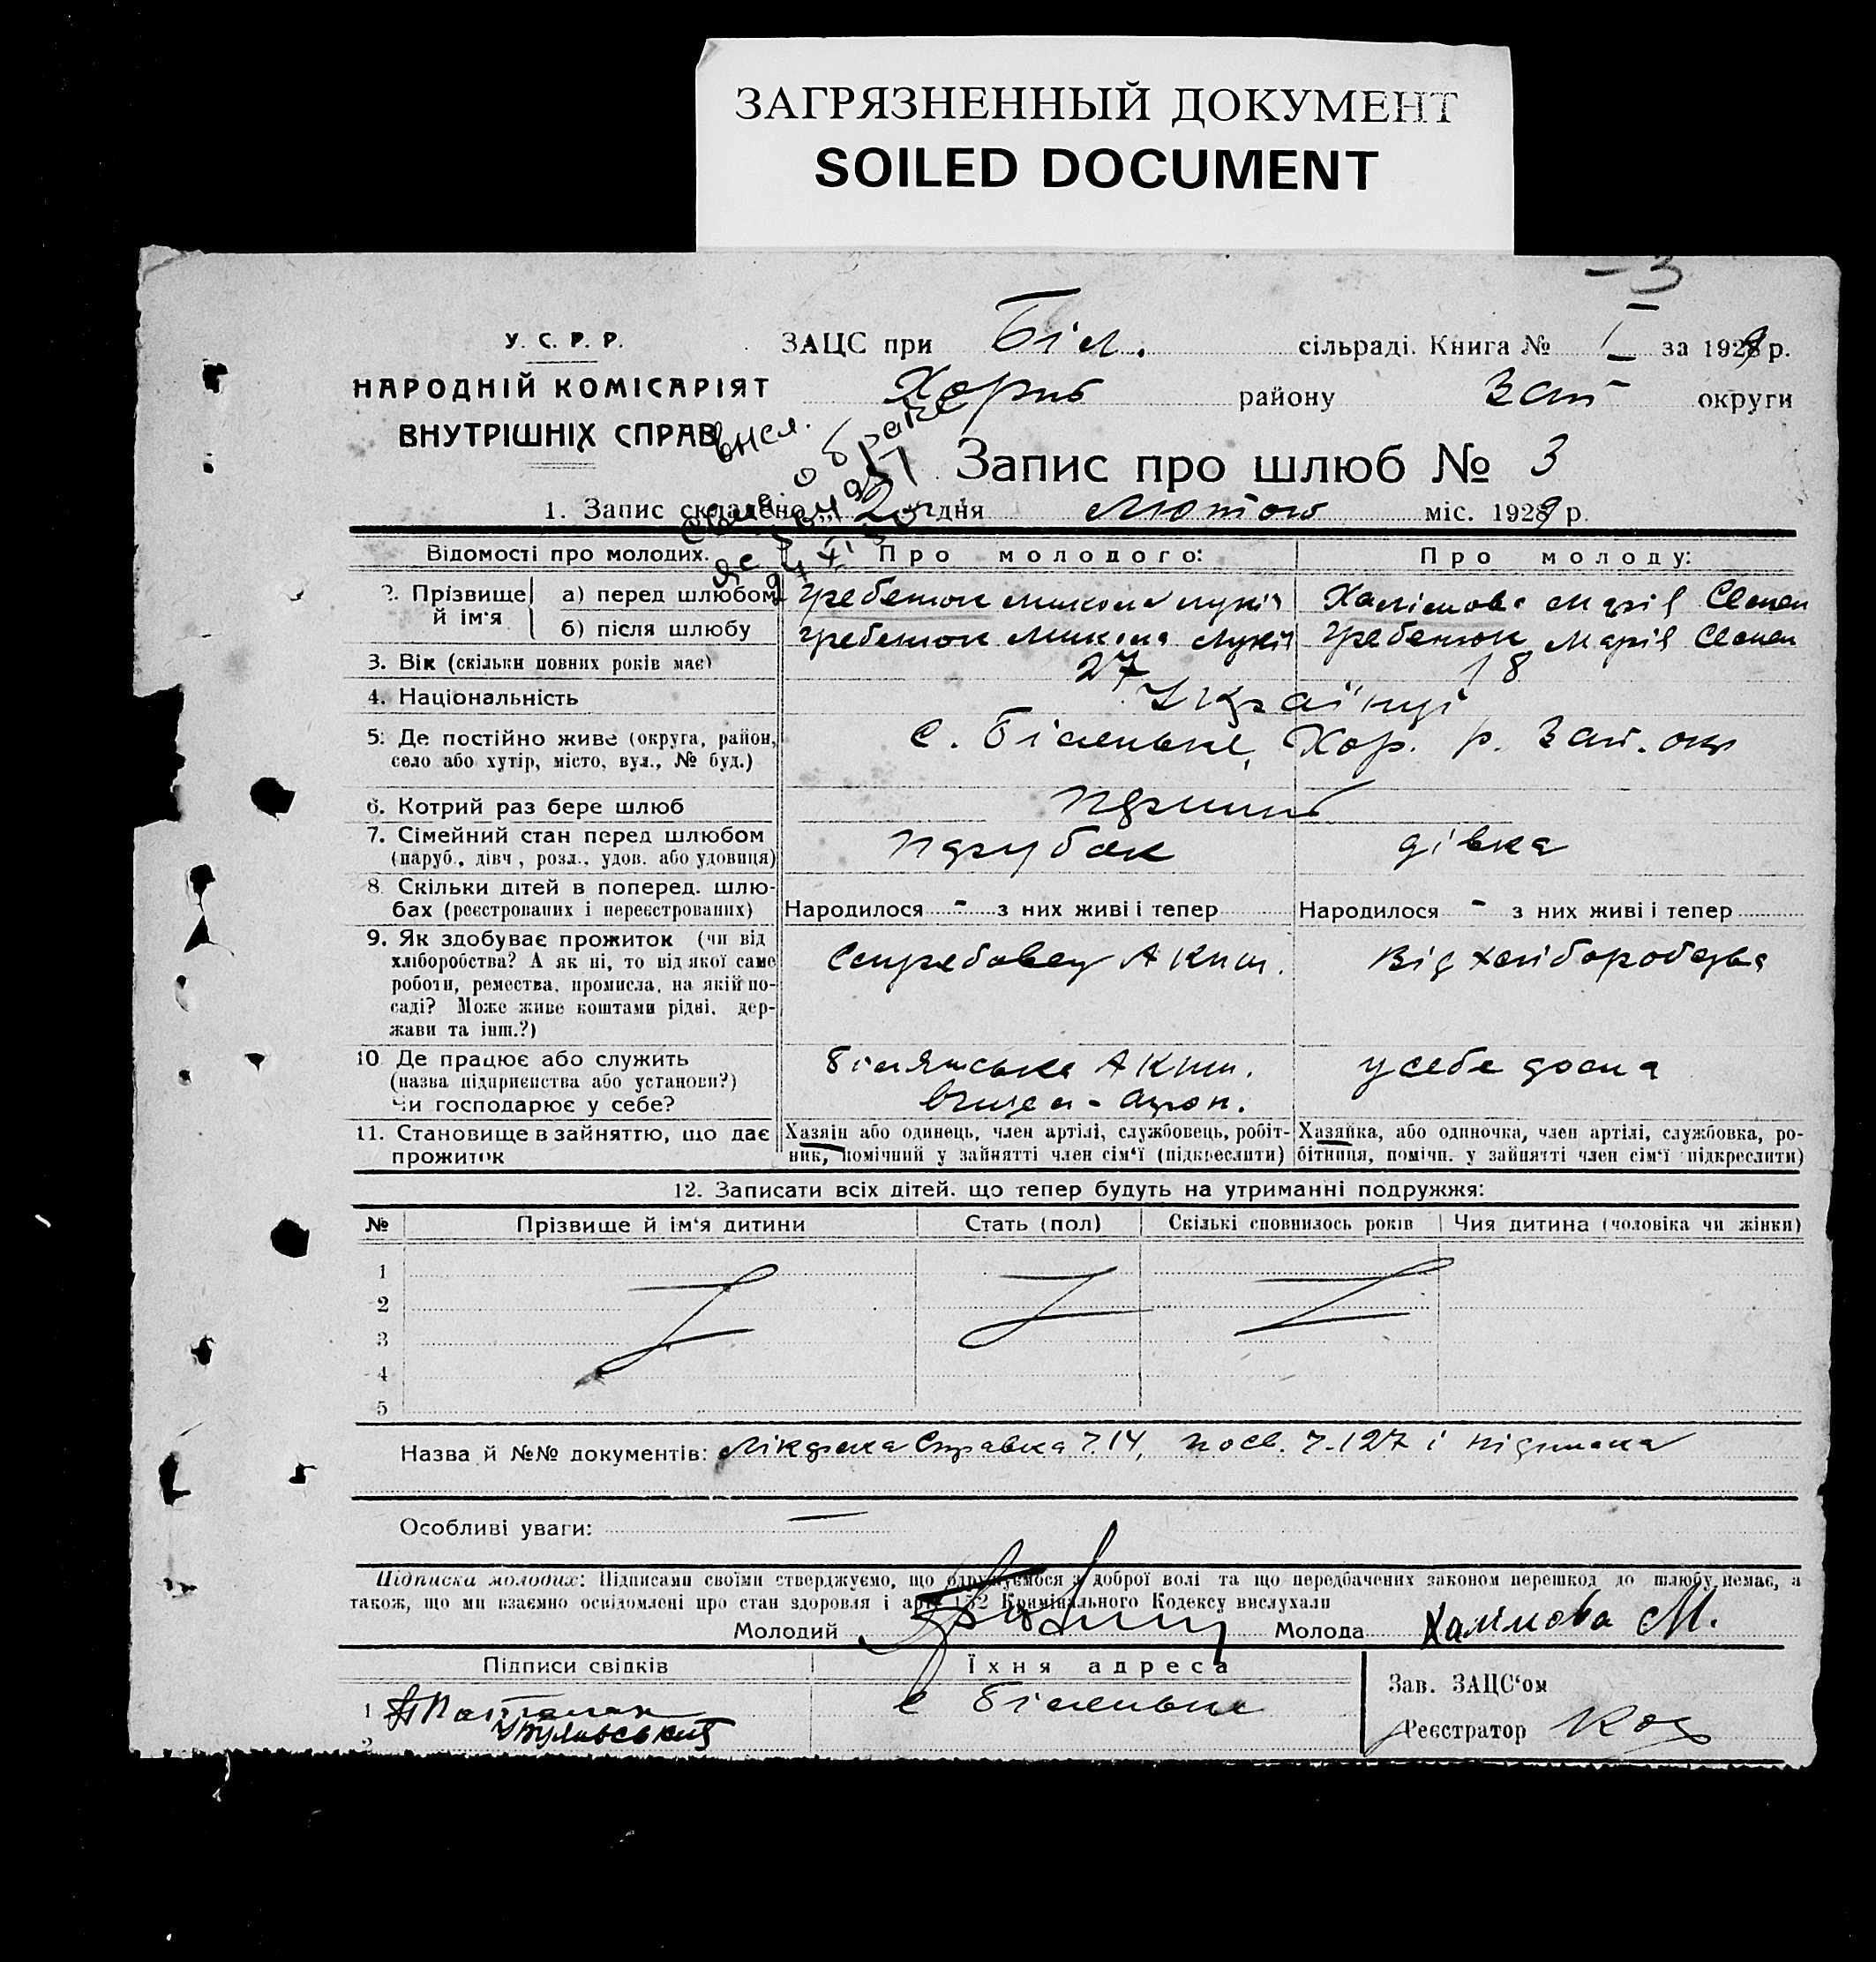 ЗАГРЯЗНЕННЫЙ ДОКУМЕНТ
SOILED DOCUMENT
3
У. С. Р. Р.
НАРОДНІЙ КОМІСАРІЯТ
ВНУТРІШНІХ СПРАВ
ЗАЦС при Біл. сільраді. Книга № I за 1929 р.
Хорт району Зап округи
Запис про шлюб № 3
1. Запис складено 2 дня Лютого міс. 1929 р.
Відомості про молодих. Про молодого: Про молоду:
2. Прізвище й ім'я
а) перед шлюбом Гребенюк Микола Лукія Халімова Марія Семен
б) після шлюбу Гребенюк Микола Лукія Гребенюк Марія Семен
3. Вік (скільки повних років має) 27 18
4. Національність Українці
5. Де постійно живе (округа, район,
село або хутір, місто, вул., № буд.) с. Біленьке, Хор. р. Зап. окр
6. Котрий раз бере шлюб перший
7. Сімейний стан перед шлюбом
(паруб., дівч., розл., удов. або удовиця) парубок дівка
8 Скільки дітей в поперед. шлю-
бах (реєстрованих і нереєстрованих) Народилося - з них живі і тепер Народилося - з них живі і тепер
9. Як здобуває прожиток (чи від
хліборобства? А як ні, то від якої саме
роботи, ремества, промисла, на якій по-
саді? Може живе коштами рідні, дер-
жави та інш.?)
Від хліборобства
10 Де працює або служить
(назва підприємства або установи?)
Чи господарює у себе?
у себе дома
11. Становище в зайняттю, що дає
прожиток
Хазяїн або одинець, член артілі, службовець, робіт-
ник, помічний у зайнятті член сім'ї (підкреслити)
Хазяйка, або одиночка, член артілі, службовка, ро-
бітниця, помічн. у зайнятті член сім'ї підкреслити)
12. Записати всіх дітей, що тепер будуть на утриманні подружжя:
№ Прізвище й ім'я дитини Стать (пол) Скількі сповнилось років Чия дитина (чоловіка чи жінки)
1
2
3
4
5
Назва й №№ документів: Лікарська Справка ч. 14, посв. ч. 127 і підписка
Особливі уваги: —
Підписка молодих: Підписами своїми стверджуємо, що одружуємося з доброї волі та що передбачених законом перешкод до шлюбу немає, а
також, що ми взаємно освідомлені про стан здоровля і арт. 152 Кримінального Кодексу вислухали
Молодий Молода Халімова М.
Підписи свідків Їхня адреса
1 с Біленьке
2
Зав. ЗАЦС'ом
Реєстратор